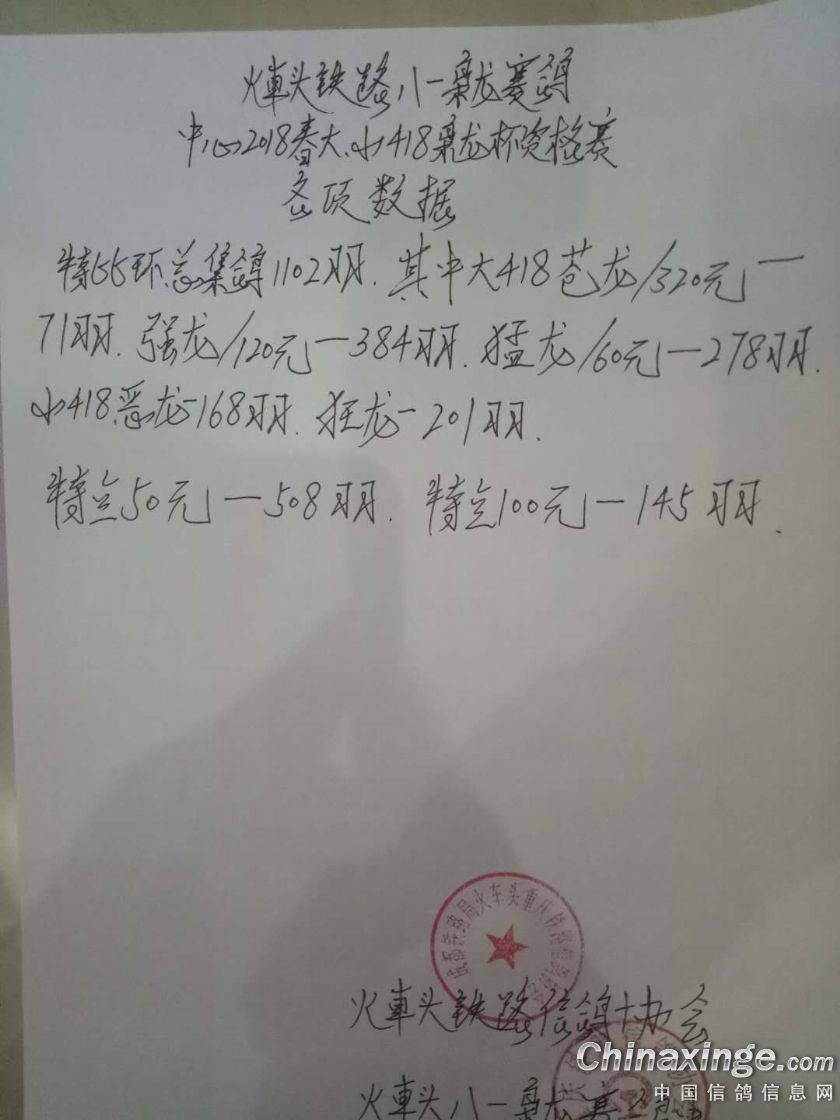 火車头铁路八一枭龙赛鸽
中心2018春大、小418枭龙杯资格赛
各项数据
特比环总集鸽1102羽.其中大418苍龙/320元一
71羽.强龙/120元一384羽.猛龙/60元一278羽.
小418.恶龙-168羽.狂龙-201羽.
特比50元一508羽.特比100元一145羽.
成都铁路局火车头重庆铁路信鸽协会
火車头铁路信鸽协会
Chinaxinge.com
火車头八一枭龙赛
中国信鸽信息网